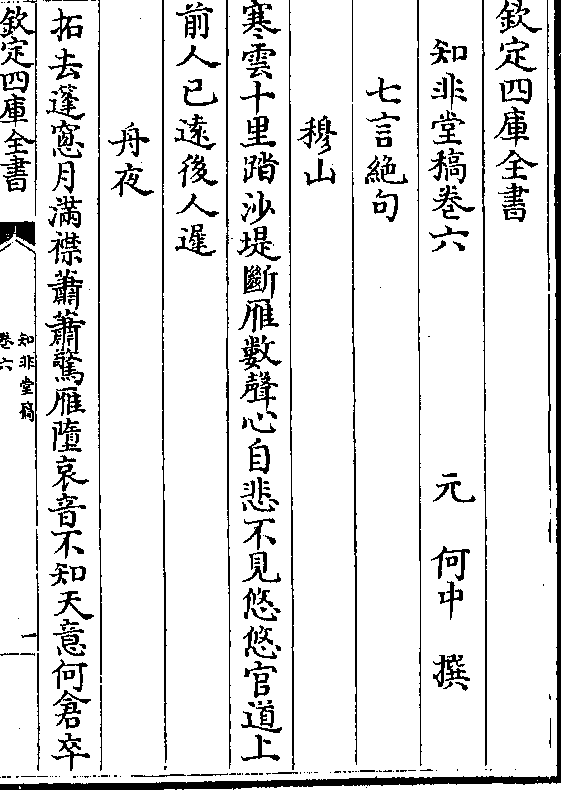 欽定四庫全書
知非堂稿卷六
元 何中 撰
七言絶句
穆山
寒雲十里踏沙堤斷雁數聲心自悲不見悠悠官道上
前人已遠後人遲
舟夜
拓去蓬窻月滿襟蕭蕭驚雁墮哀音不知天意何倉卒
欽定四庫全書
知非堂稿
卷六
一